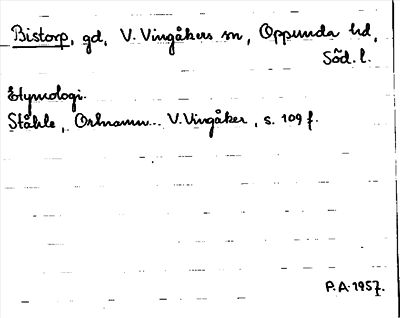 Bistorp, gd, V. Vingåkers sn, Oppunda hd,
Söd. l.
Etymologi.
Ståhle, Ortnamn... V. Vingåker, s. 109 f.
P.A. 1957.